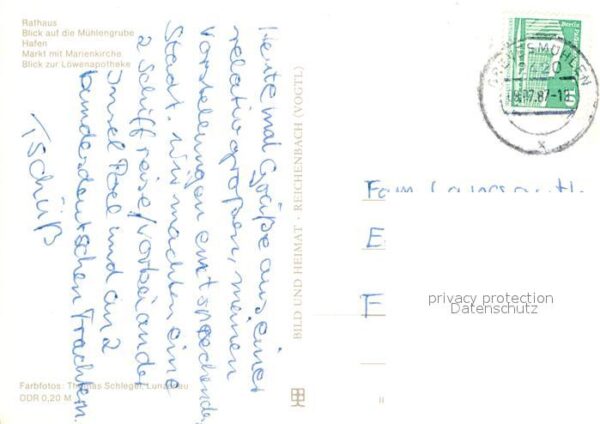 Rathaus
Blick auf die Mühlengrube
Hafen
Markt mit Marienkirche
Blick zur Löwenapotheke
Heute mal Grüße aus einer
relativ großen, meinen
Vorstellungen entsprechenden
Stadt. Wir machten eine
2 Schiffreise/vorbei an der
Insel Poel und an 2
bundesdeutschen Frachtern.
Tschüß
Farbfotos: Thomas Schlegel,
DDR 0,20 M
BILD UND HEIMAT · REICHENBACH (VOGTL)
GREVESMÜHLEN
2420
.87-18
x
10
Fam.
E
F
privacy protection
Datenschutz